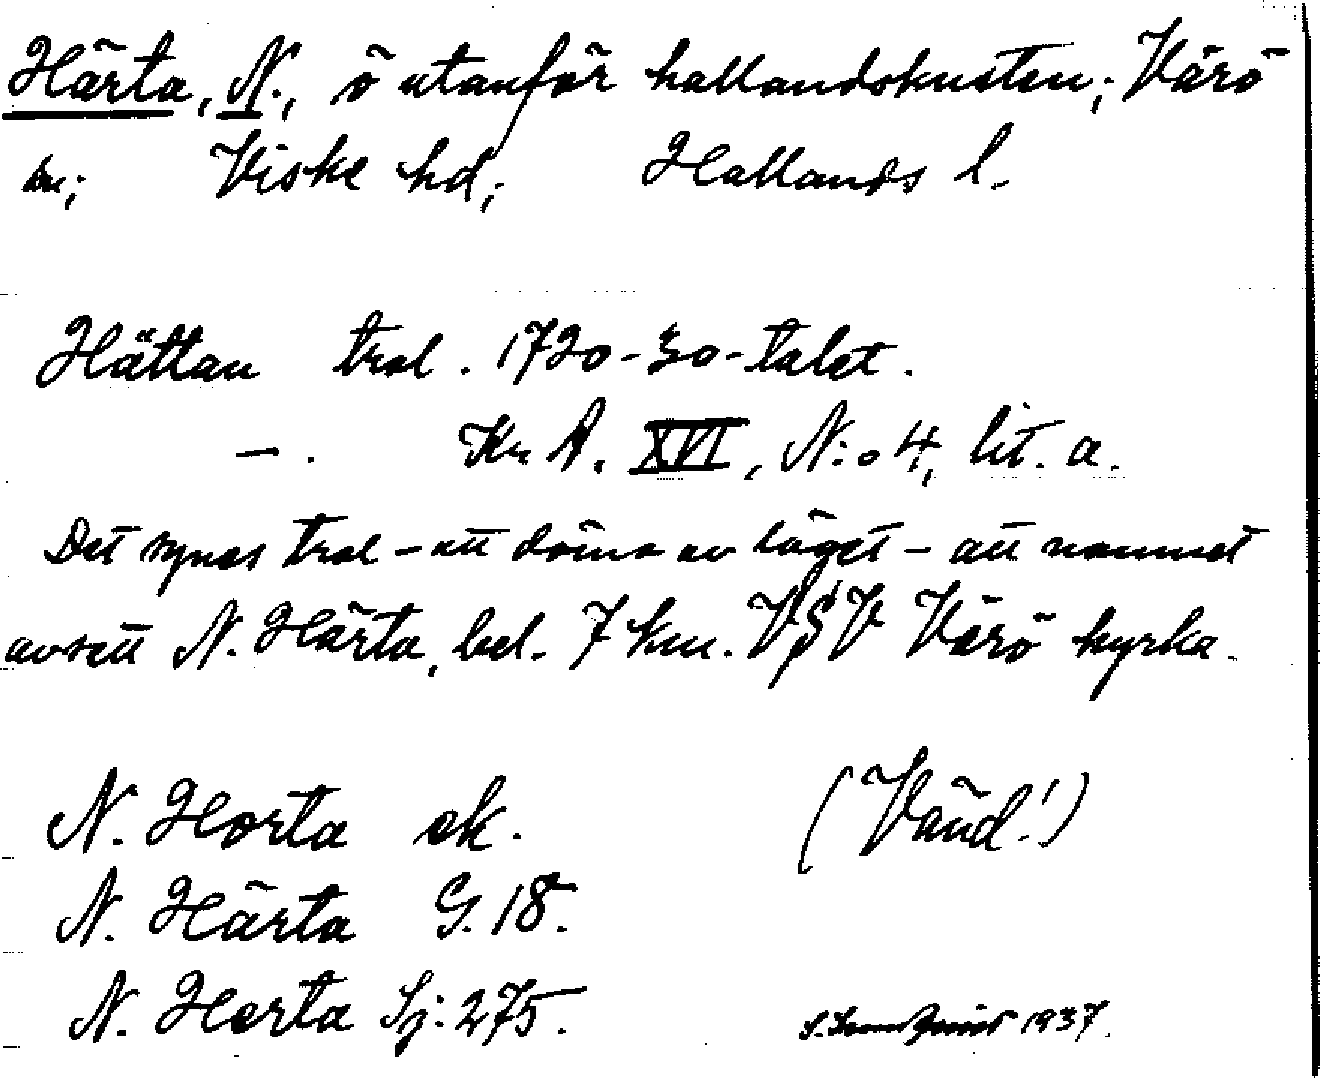 Härta, N., ö utanför hallandskusten; Värö
sn; Viske hd; Hallands l.
Hättan trol. 1720-30-talet.
—. Kr A. XVI, N:o 4, lit. a.
Det synes trol – att döma av läget – att namnet
avsett N. Härta, bel. 7 km. VSV Värö kyrka.
N. Horta ek. (Vänd!)
N. Härta G. 18.
N. Horta Sj: 275.
1937.